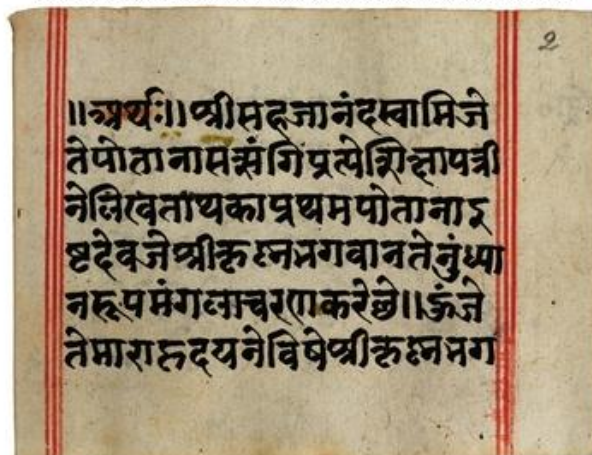 २
॥अर्थः॥श्रीसहजानंदस्वामिजे
तेपोतानासत्संगिप्रत्येशिक्षापत्री
नेलिखतांथकाप्रथमपोतानाइ
ष्टदेवजेश्रीकृष्नभगवानतेनुंध्या
नरूपमंगलाचरणकरेछे॥ऊंजे
तेमाराहृदयनेविषेश्रीकृष्नभग